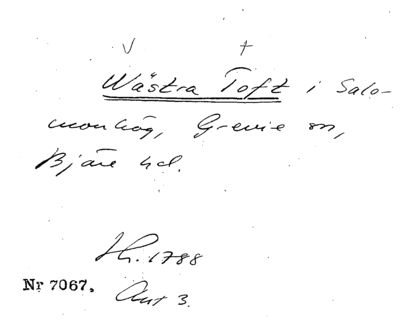 V +
Wästra Toft i Salo-
monhög, Grevie sn,
Bjäre hd.
Lh. 1788
Nr 7067.
Akt 3.